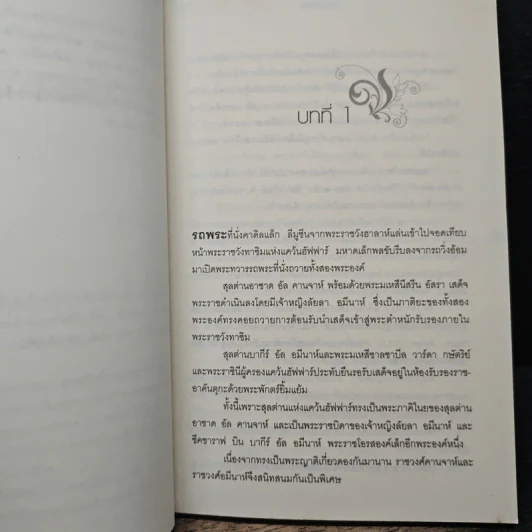 บทที่ 1
รถพระที่นั่งคาดิลแล็ก ลีมูซีนจากพระราชวังฮาลาห์แล่นเข้าไปจอดเทียบ
หน้าพระราชวังทาซิมแห่งแคว้นฮัฟฟาร์ มหาดเล็กพลขับรีบลงจากรถวิ่งอ้อม
มาเปิดพระทวารรถพระที่นั่งถวายทั้งสองพระองค์
สุลต่านอาซาด อัล คานจาห์ พร้อมด้วยพระมเหสีนัสรีน อัสรา เสด็จ
พระราชดำเนินลงโดยมีเจ้าหญิงลัยลา อมีนาห์ ซึ่งเป็นภาติยะของทั้งสอง
พระองค์ทรงคอยถวายการต้อนรับนำเสด็จเข้าสู่พระตำหนักรับรองภายใน
พระราชวังทาซิม
สุลต่านบากีร์ อัล อมีนาห์และพระมเหสีซาลซาบีล วาร์ดา กษัตริย์
และพระราชินีผู้ครองแคว้นฮัฟฟาร์ประทับยืนรอรับเสด็จอยู่ในห้องรับรองราช-
อาคันตุกะด้วยพระพักตร์ยิ้มแย้ม
ทั้งนี้เพราะสุลต่านแห่งแคว้นฮัฟฟาร์ทรงเป็นพระภาคิไนยของสุลต่าน
อาซาด อัล คานจาห์ และเป็นพระราชบิดาของเจ้าหญิงลัยลา อมีนาห์ และ
ชีคซาราฟ บิน บากีร์ อัล อมีนาห์ พระราชโอรสองค์เล็กอีกพระองค์หนึ่ง
เนื่องจากทรงเป็นพระญาติเกี่ยวดองกันมานาน ราชวงศ์คานจาห์และ
ราชวงศ์อมีนาห์จึงสนิทสนมกันเป็นพิเศษ